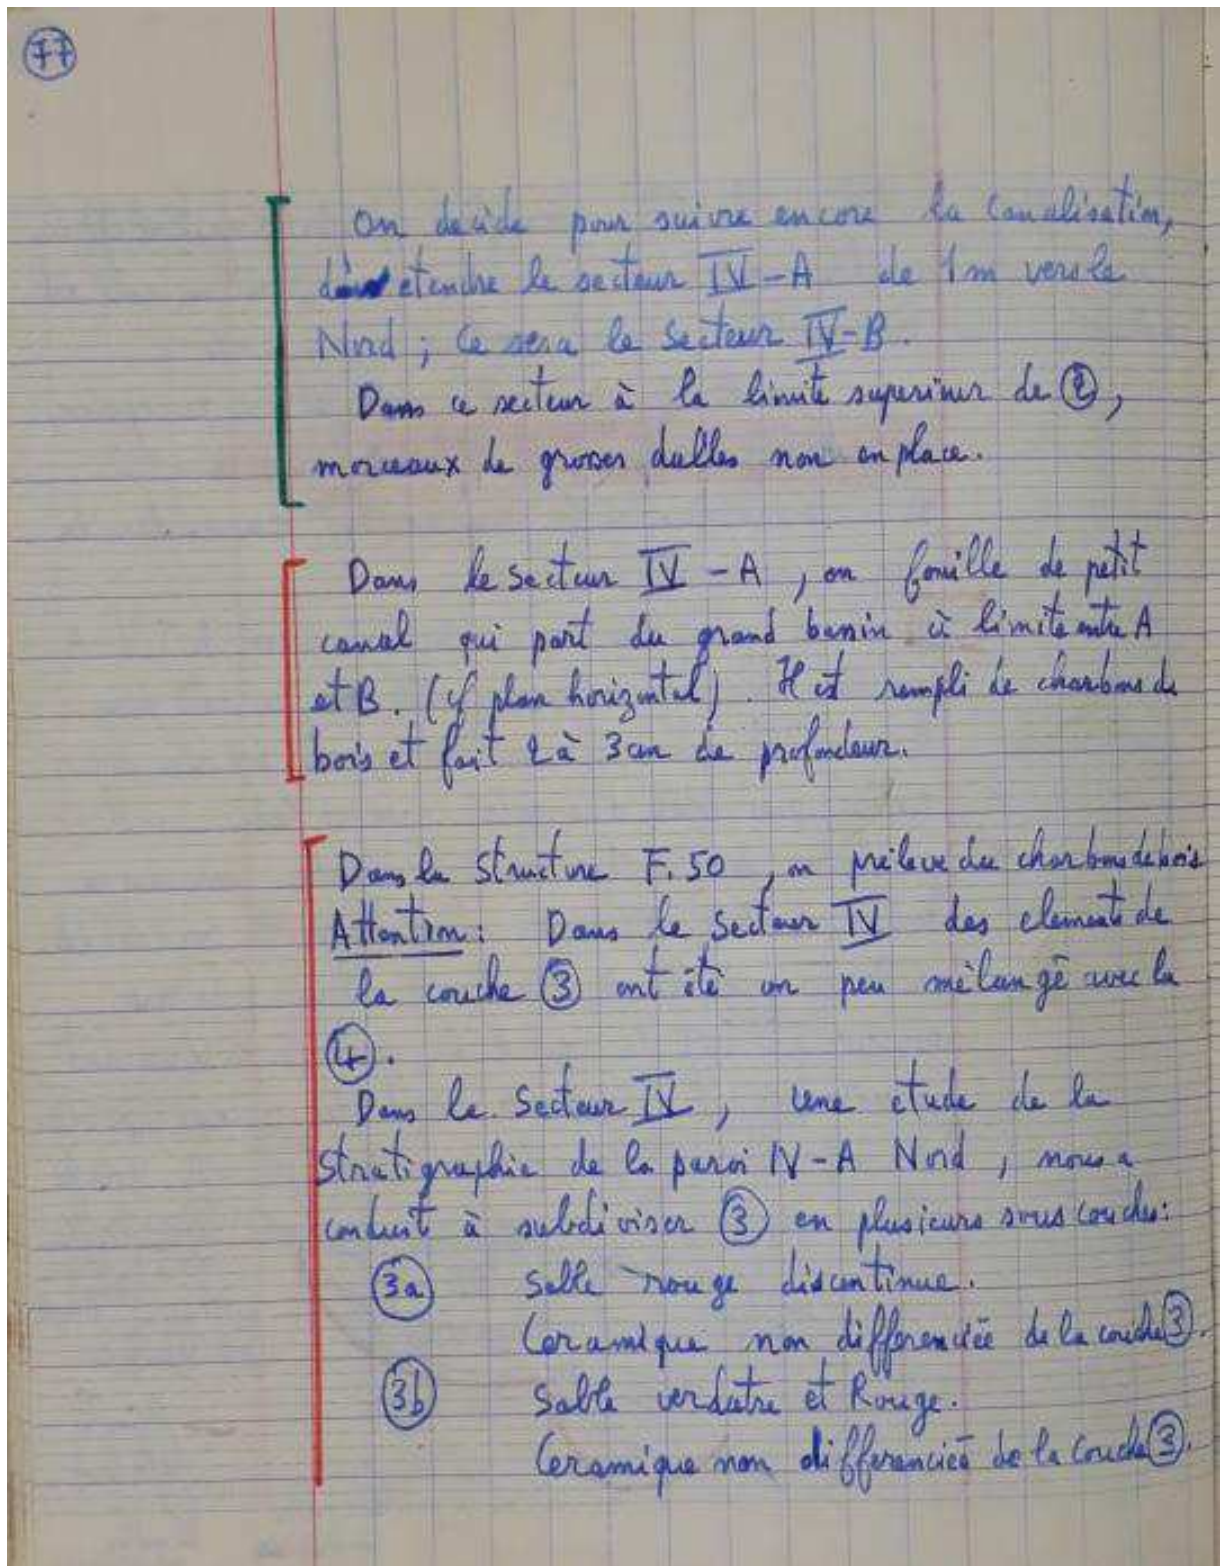 77
On decide pour suivre encore la canalisation,
d'etendre le secteur IV-A de 1m vers le
Nord ; Ce sera le Secteur IV-B.
Dans ce secteur à la limite superieur de ②,
morceaux de grosses dalles non en place.
Dans le secteur IV - A , on fouille de petit
canal qui part du grand bassin à limite entre A
et B. (cf plan horizontal). Il est rempli de charbons de
bois et fait 2 à 3 cm de profondeur.
Dans la Structure F.50 , on préleve du charbons de bois
Attention : Dans le Secteur IV des elements de
la couche ③ ont été un peu mélangé avec la
④.
Dans le Secteur IV , une étude de la
Stratigraphie de la paroi IV-A Nord , nous a
conduit à subdiviser ③ en plusieurs sous couches:
3a Sable rouge discontinue.
Ceramique non differenciée de la couche ③.
3b Sable verdatre et Rouge.
Ceramique non differenciée de la couche ③.